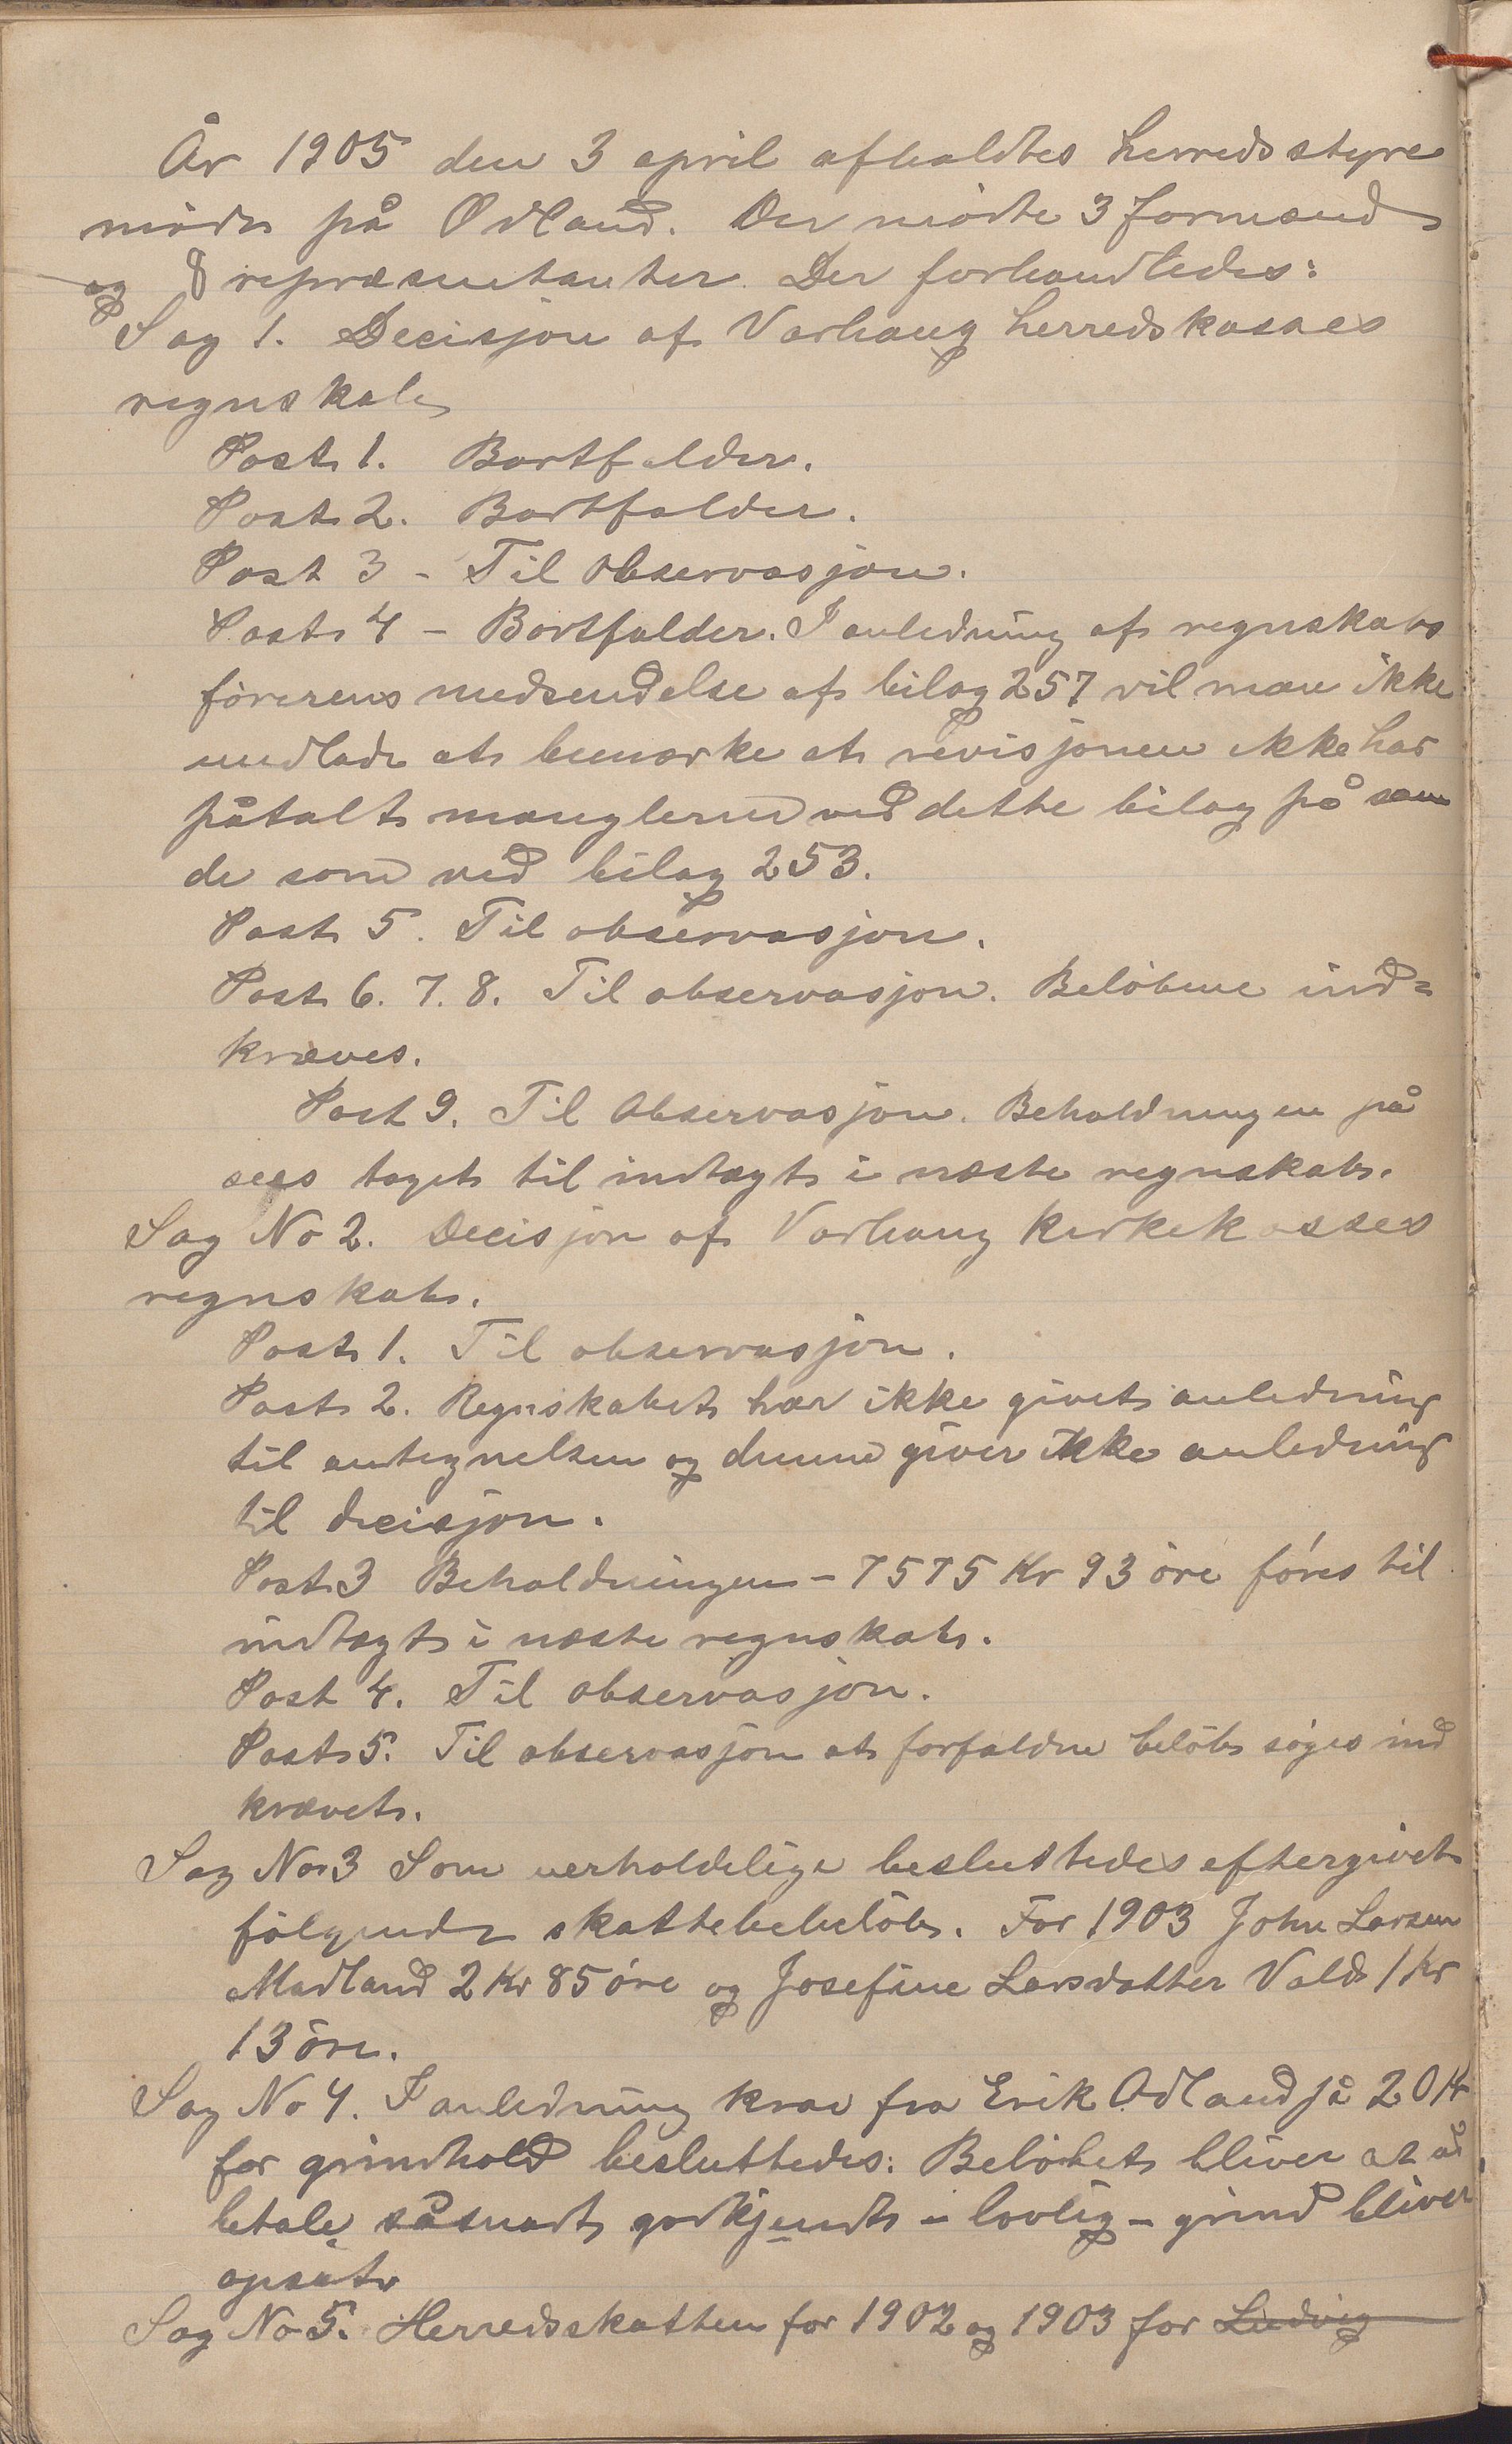 År 1905 den 3 april afholdtes herredsstyre
möde på Ødland. Der mödte 3 formænd
og 8 repræsentanter. Der forhandledes:
Sag 1. Decisjon af Varhaug herredskasses
regnskab
Post 1. Bortfalder.
Post 2. Bortfalder.
Post 3 - Til Observasjon.
Post 4 - Bortfalder. I anledning af regnskabs
förerens medsendelse af bilag 257 vil man ikke
undlade at bemærke at revisjonen ikke har
påtalt manglerne ved dette bilag på sam
de som ved bilag 253.
Post 5. Til observasjon.
Post 6. 7. 8. Til observasjon. Belöbene ind=
kræves.
Post 9. Til Observasjon. Beholdningen på
sees taget til indtægt i næste regnskab.
Sag No 2. Decisjon af Varhaug kirkekasses
regnskab.
Post 1. Til observasjon.
Post 2. Regnskabet har ikke givet anledning
til antegnelsen og denne giver ikke anledning
til decisjon.
Post 3 Beholdningen - 7575 Kr 93 öre föres til
indtægt i næste regnskab.
Post 4. Til observasjon.
Post 5. Til observasjon at forfaldne belöb söges ind
krævet.
Sag No 3 Som uerholdelige besluttedes eftergivet
fölgende skattebebelöb. For 1903 John Larsen
Madland 2 Kr 85 öre og Josefine Larsdatter Vold 1 Kr
13 öre.
Sag No 4. I anledning krav fra Erik Ødland på 20 Kr
for grindhold besluttedes: Belöbet bliver at ud
betale såsnart godkjendt - lovlig - grind bliver
opsat
Sag No 5. Herredsskatten for 1902 og 1903 for Ludvig